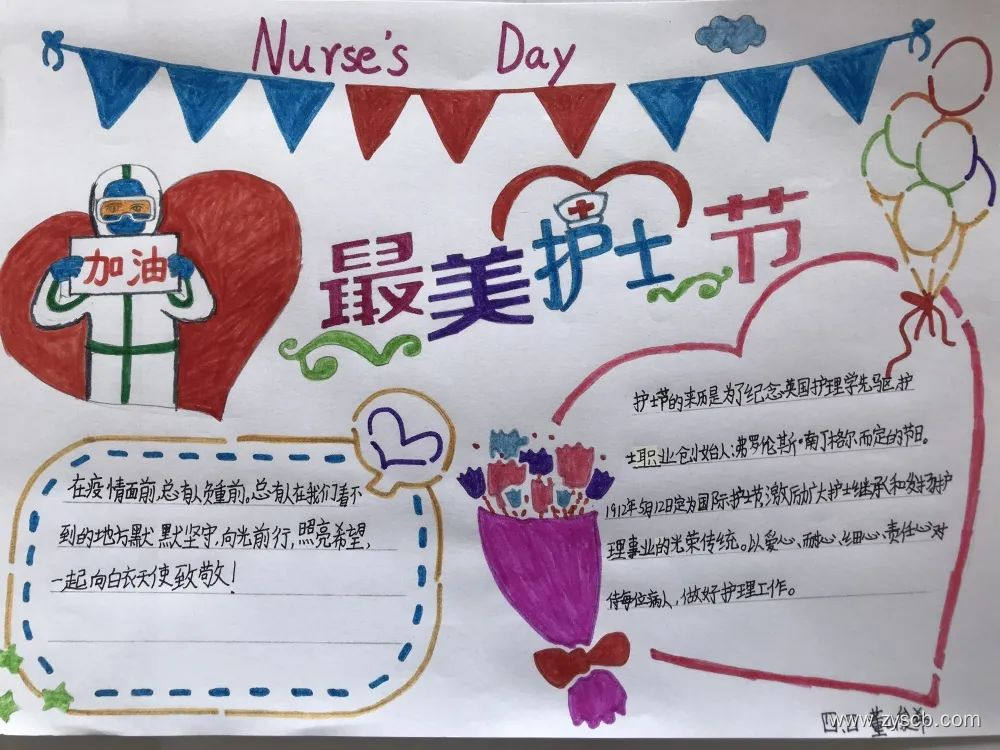 Nurse's Day
加油
最美护士节
护士节的来历是为了纪念英国护理学先驱、护
士职业创始人:弗罗伦斯·南丁格尔而定的节日。
1912年5月12日定为国际护士节,激励广大护士继承和发扬护
理事业的光荣传统。以爱心、耐心、细心、责任心对
待每位病人,做好护理工作。
在疫情面前,总有人负重前。总有人在我们看不
到的地方默默坚守,向光前行,照亮希望,
一起向白衣天使致敬!
www.zyscb.com